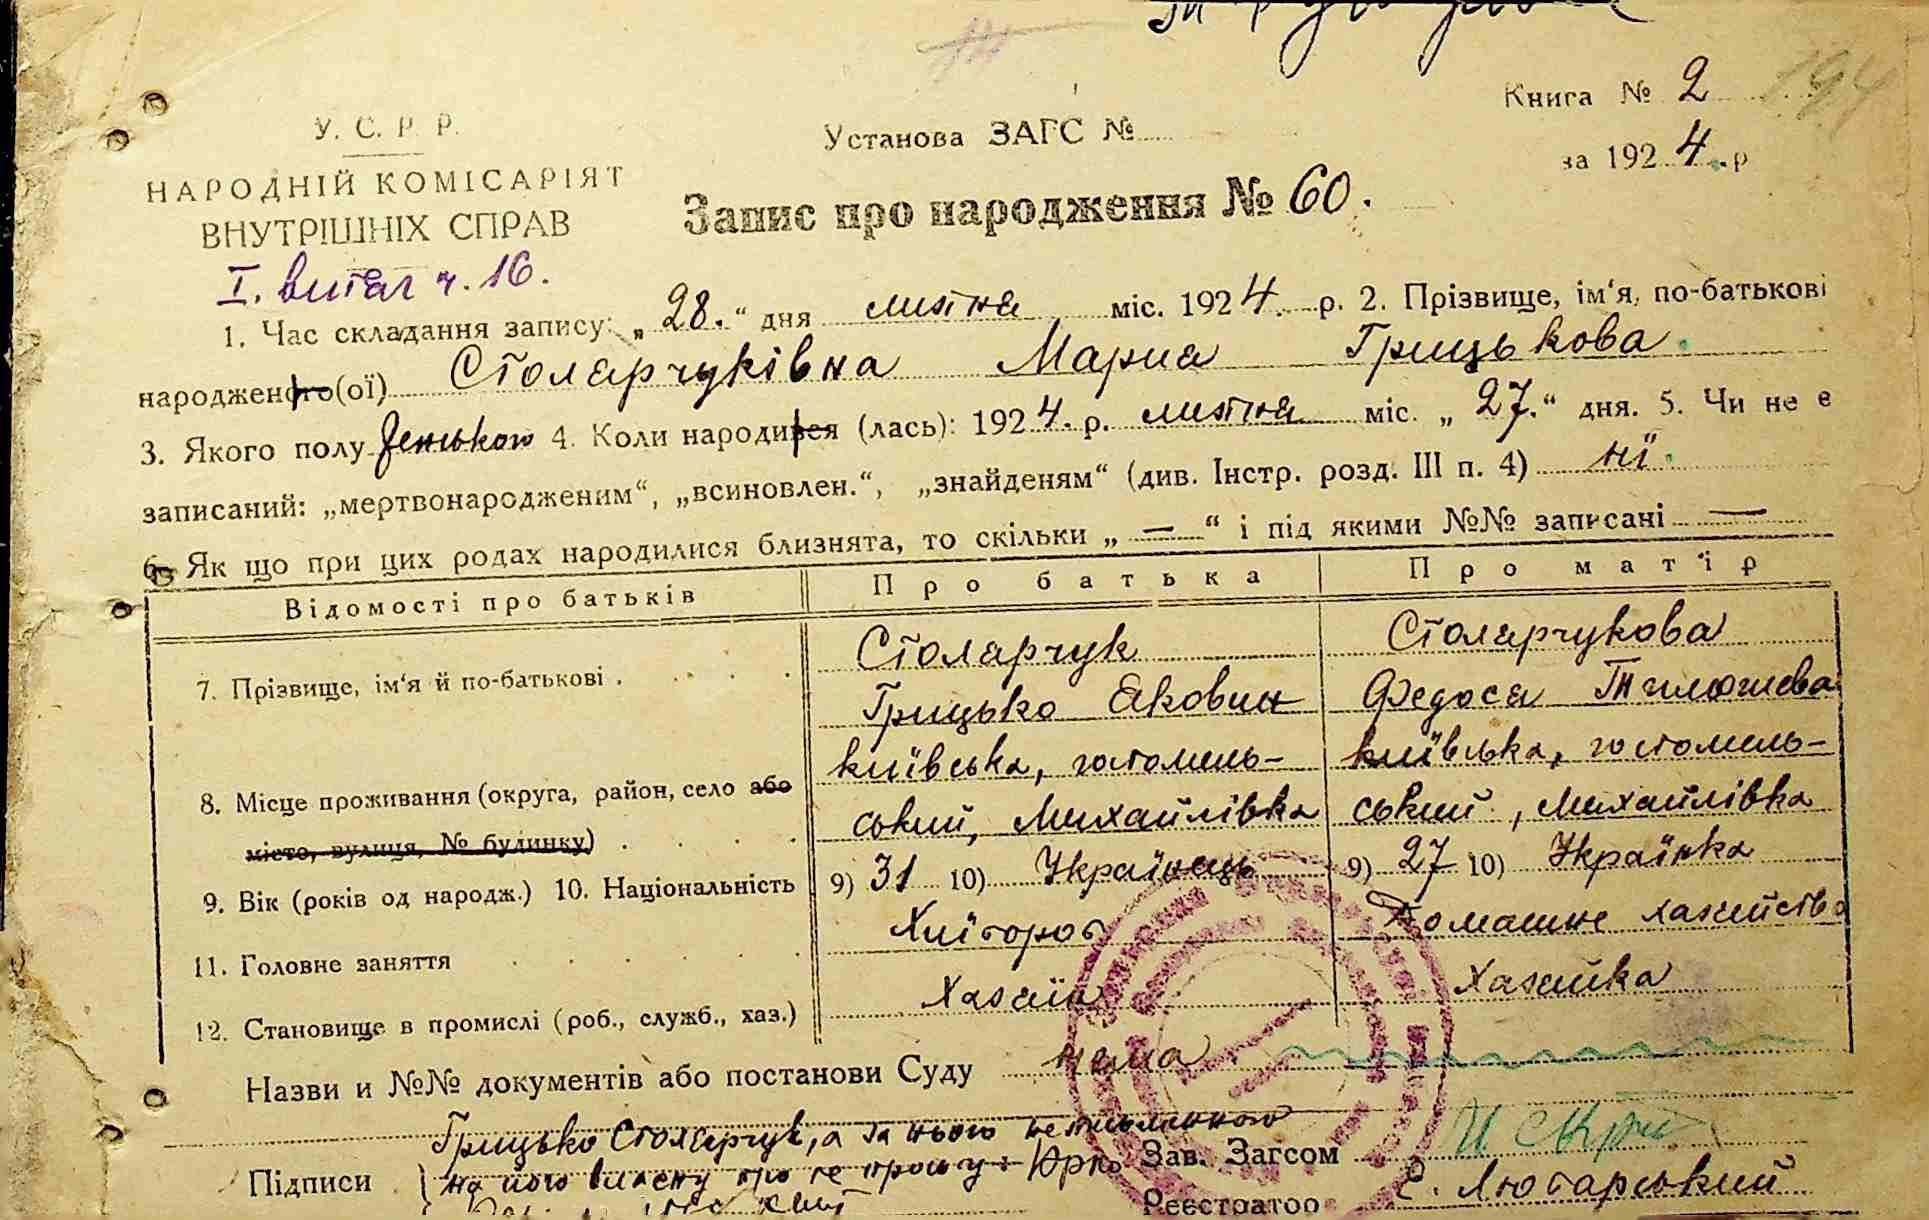 Книга № 2 194
У. С. Р. Р.
Установа ЗАГС №
за 1924. р
НАРОДНІЙ КОМІСАРІЯТ
ВНУТРІШНІХ СПРАВ
Запис про народження № 60.
І. витяг ч. 16.
1. Час складання запису: „28.“ дня липня міс. 1924. р. 2. Прізвище, ім‘я, по-батькові
народженого(ої) Столярчуківна Мария Грицькова.
3. Якого полу Женького 4. Коли народився (лась): 1924. р. липня міс. „27.“ дня. 5. Чи не є
записаний: „мертвонародженим“, „всиновлен.“, „знайденям“ (див. Інстр. розд. III п. 4) ні.
6. Як що при цих родах народилися близнята, то скільки „—“ і під якими №№ записані —
Відомості про батьків Про батька Про матір
7. Прізвище, ім‘я й по-батькові Столярчук Столярчукова
Грицько Якович Федося
8. Місце проживання (округа, район, село або київська, гостомель- київська, гостомель-
місто, вулиця, № будинку) ський, Михайлівка ський, Михайлівка
9. Вік (років од народж.) 10. Національність 9) 31 10) Українець 9) 27 10) Українка
11. Головне заняття Хлібороб Домашне хазяйство
12. Становище в промислі (роб., служб., хаз.) Хазяїн Хазяйка
Назви и №№ документів або постанови Суду нема
Грицько Столярчук, а за нього неписьменного
Підписи на його власну про те прозьбу: Юрко Зав. Загсом
Реєстратор Є. Лютарський